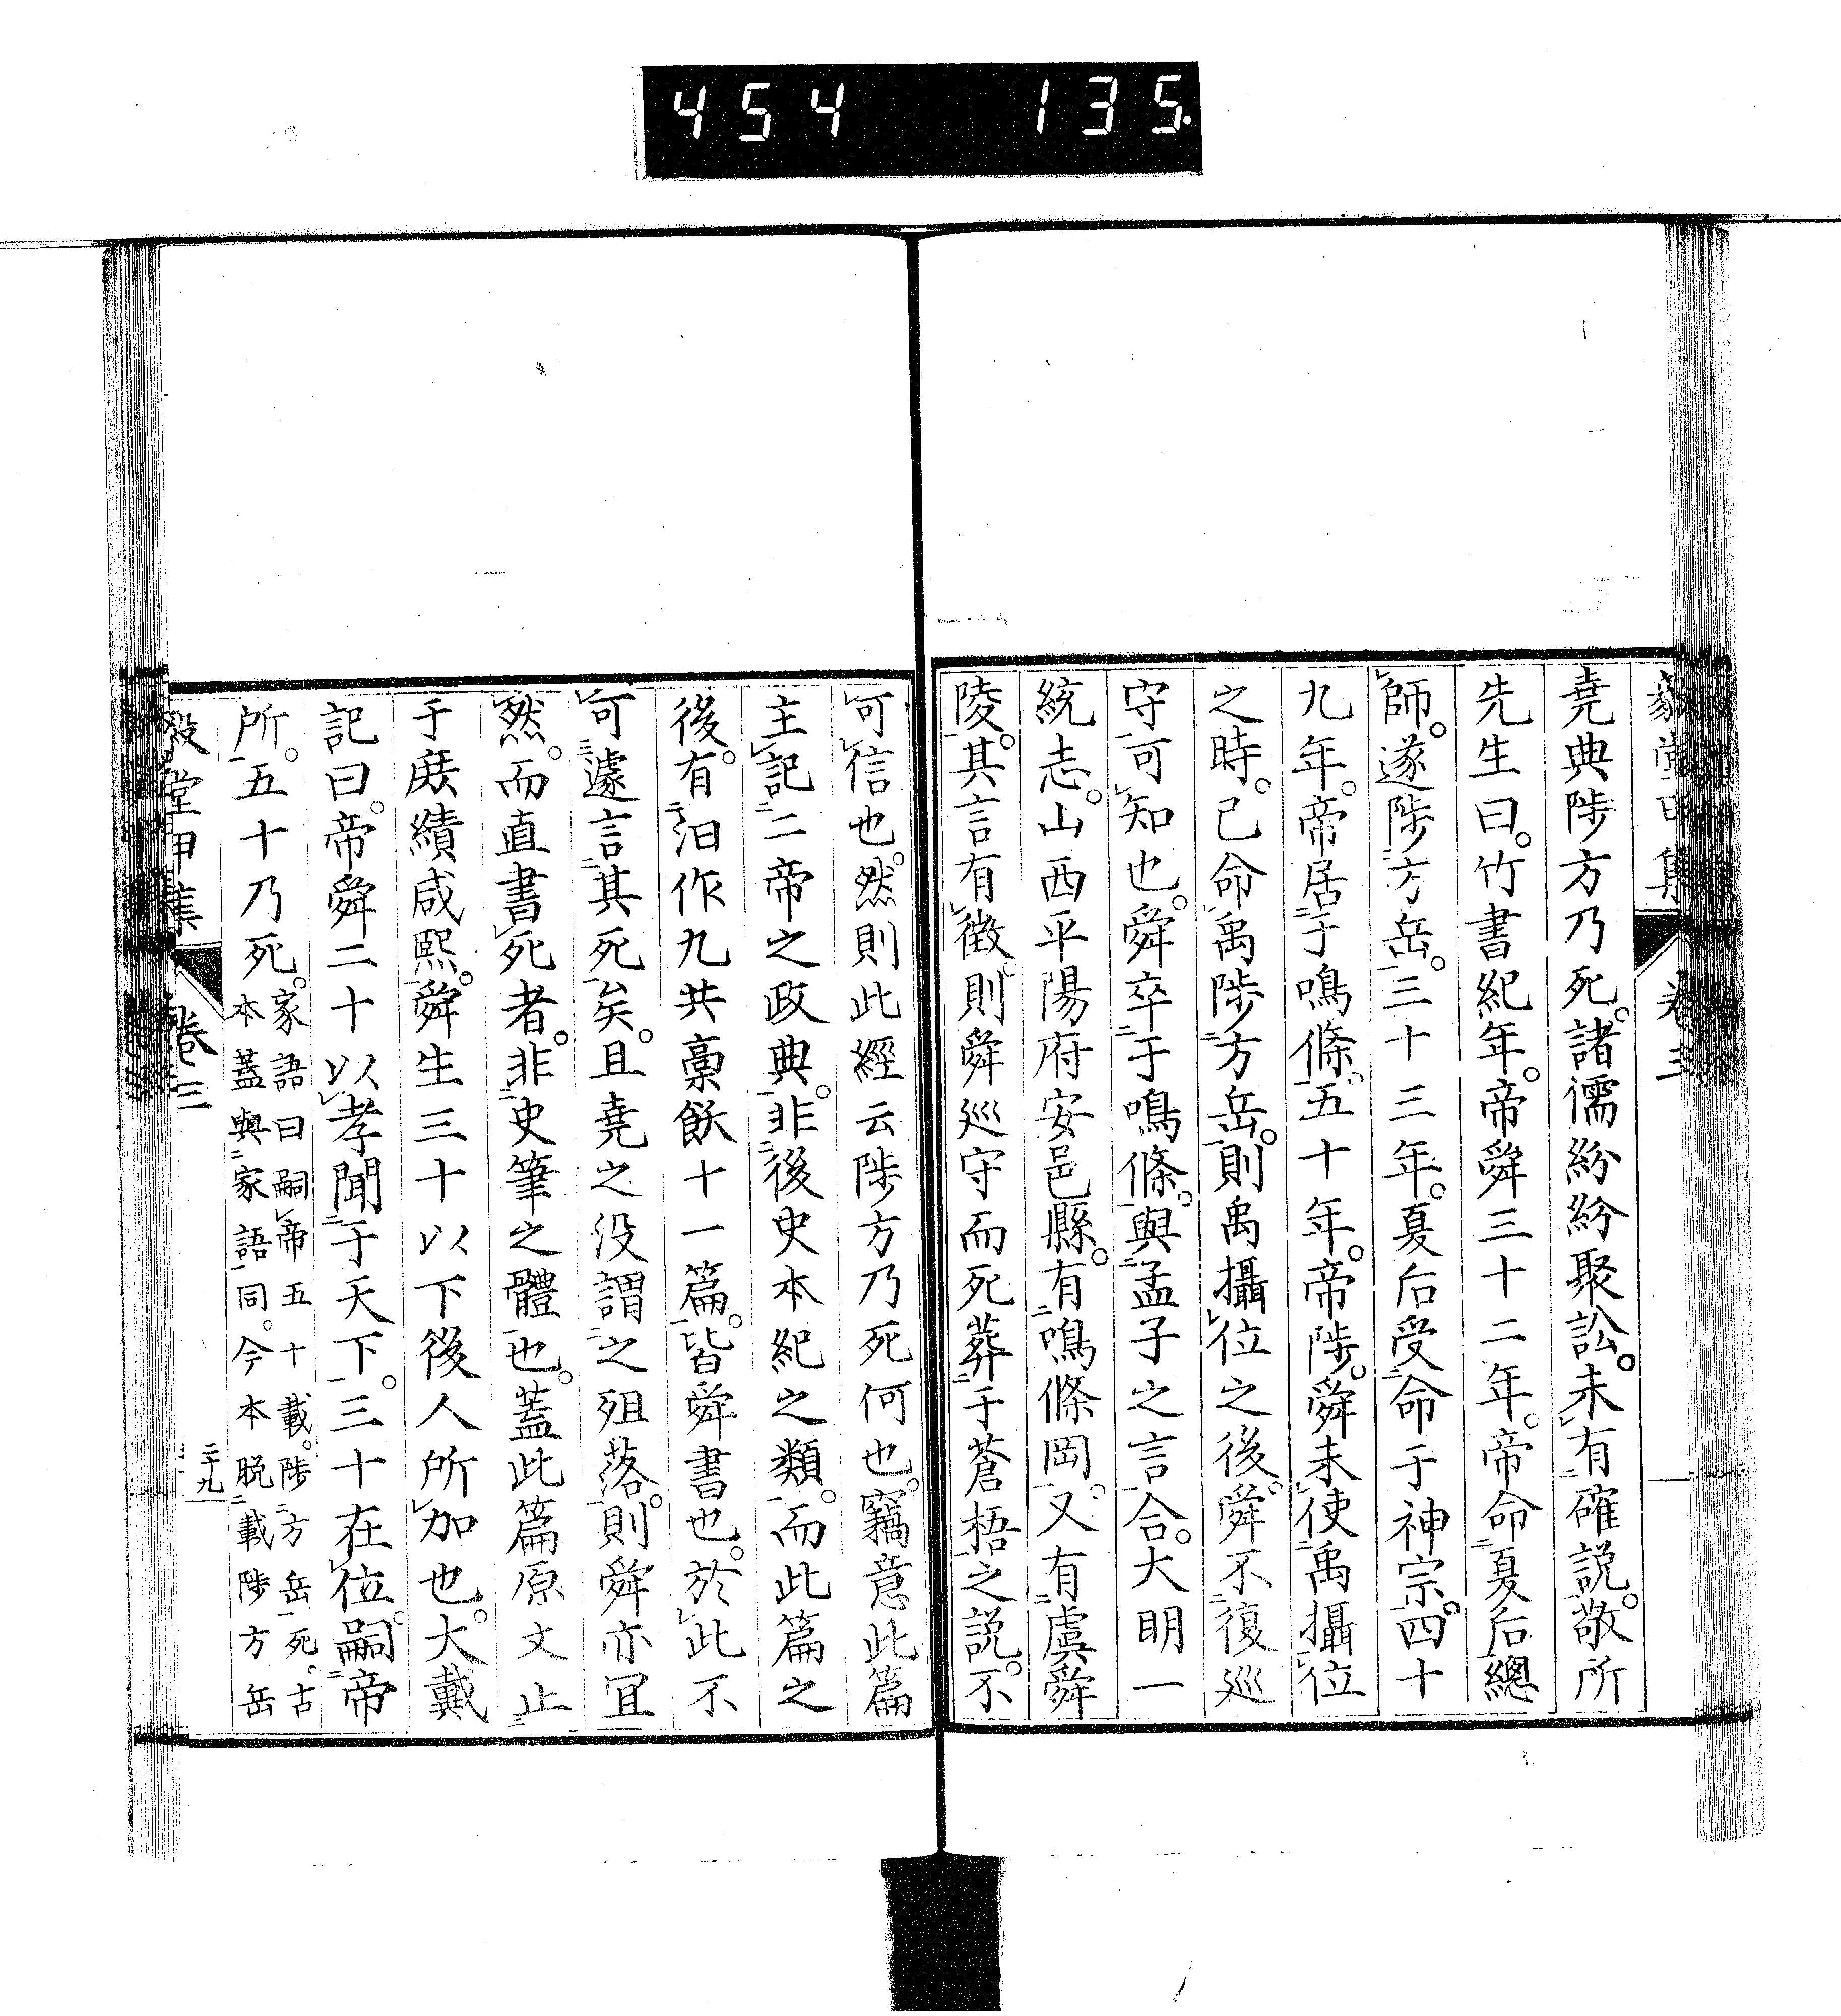 454 135
堯典陟方乃死。諸儒紛紛聚訟。未有確説。敬所
先生曰。竹書紀年。帝舜三十二年。帝命夏后總
師。遂陟方岳。三十三年。夏后受命于神宗。四十
九年。帝居于鳴條。五十年。帝陟。舜未使禹攝位
之時。已命禹陟方岳。則禹攝位之後。舜不復巡
守可知也。舜卒于鳴條。與孟子之言合。大明一
統志。山西平陽府安邑縣。有鳴條岡。又有虞舜
陵。其言有徴。則舜巡守而死葬于蒼梧之説。不
可信也。然則此經云陟方乃死何也。竊意此篇
主記二帝之政典。非後史本紀之類。而此篇之
後。有汨作九共槀飫十一篇。皆舜書也。於此不
可遽言其死矣。且堯之没謂之殂落。則舜亦宜
然。而直書死者。非史筆之體也。蓋此篇原文止
于庶績咸熙。舜生三十以下後人所加也。大戴
記曰。帝舜二十以孝聞于天下。三十在位。嗣帝
所。五十乃死。家語曰嗣帝五十載。陟方岳死。古
本蓋與家語同。今本脱載陟方岳
毅堂甲集 卷三 二十九